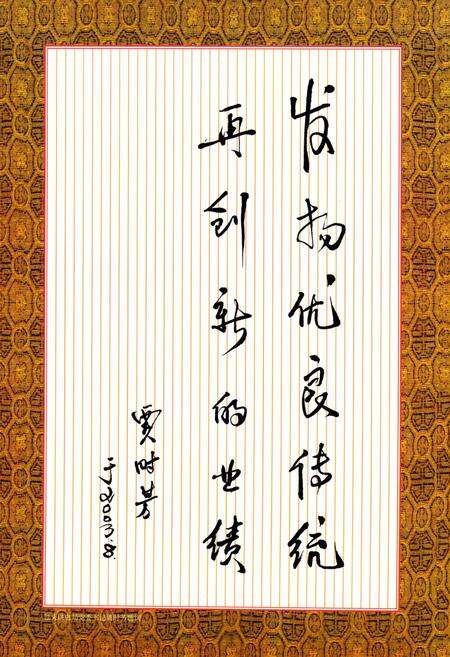 发扬优良传统
再创新的业绩
贾时芳
于2003.8.